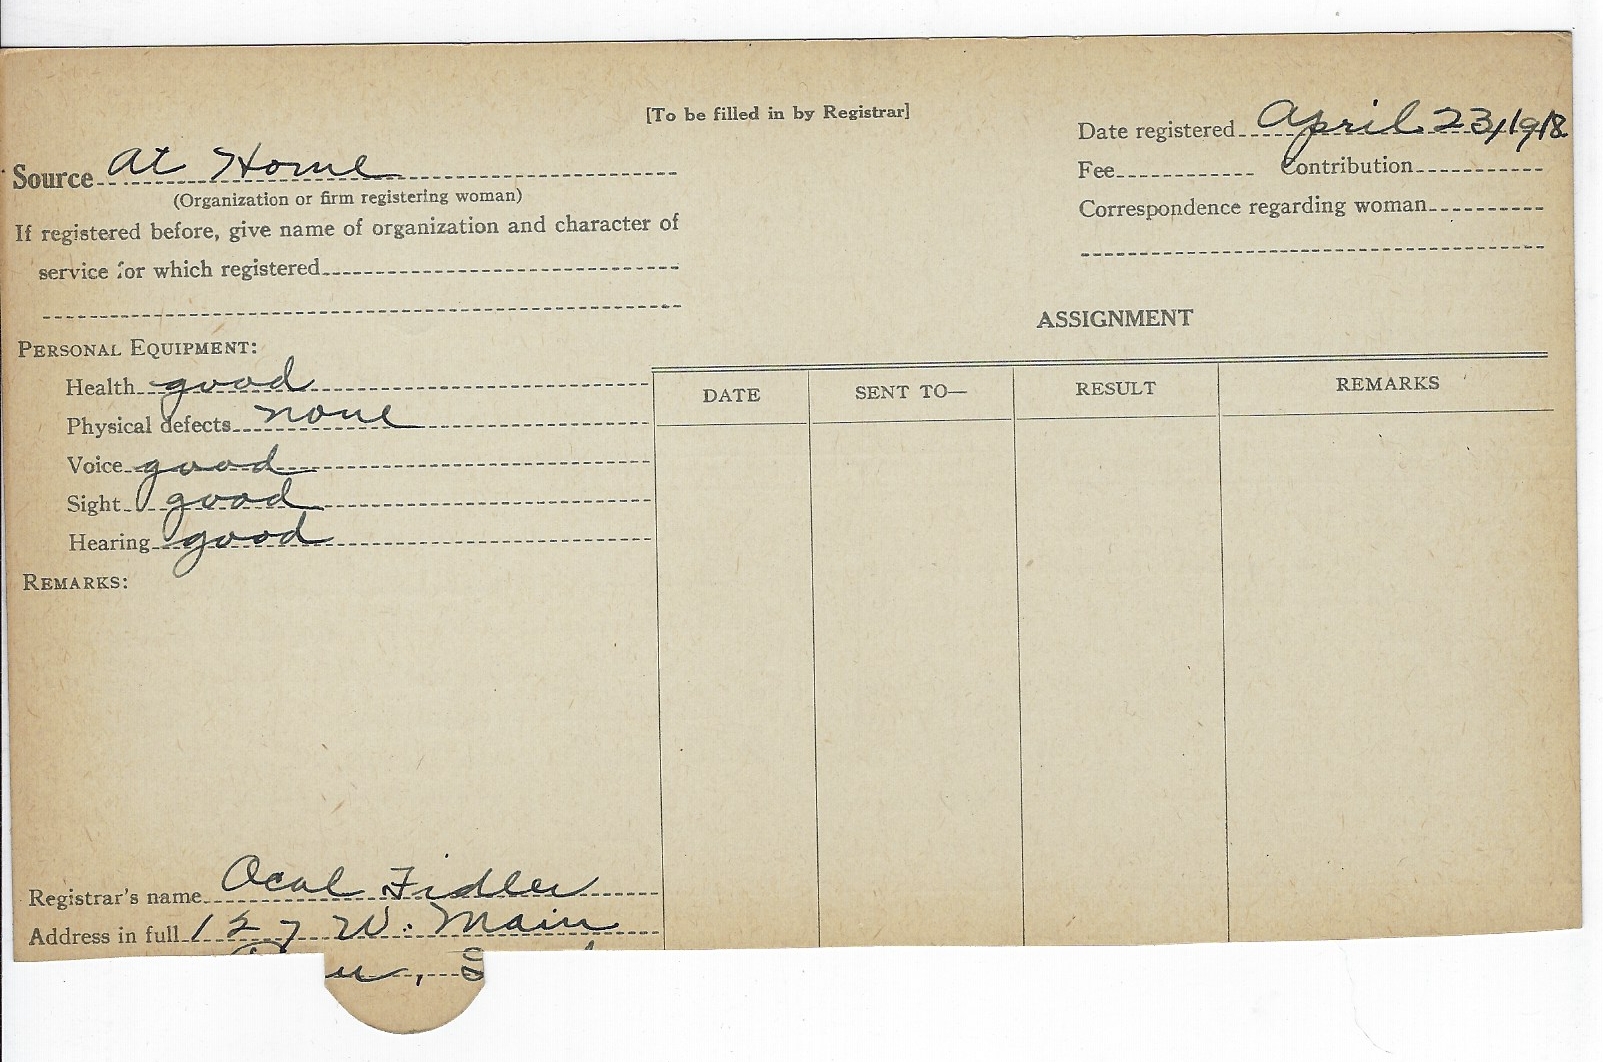 [To be filled in by Registrar]
Date registered April 23, 1918
Source At Home
Fee Contribution
(Organization or firm registering woman)
Correspondence regarding woman
If registered before, give name of organization and character of
service for which registered
ASSIGNMENT
PERSONAL EQUIPMENT:
Health good
Physical defects none
Voice good
Sight good
Hearing good
DATE SENT TO— RESULT REMARKS
REMARKS:
Registrar's name Ocal Fidler
Address in full 127 W. Main